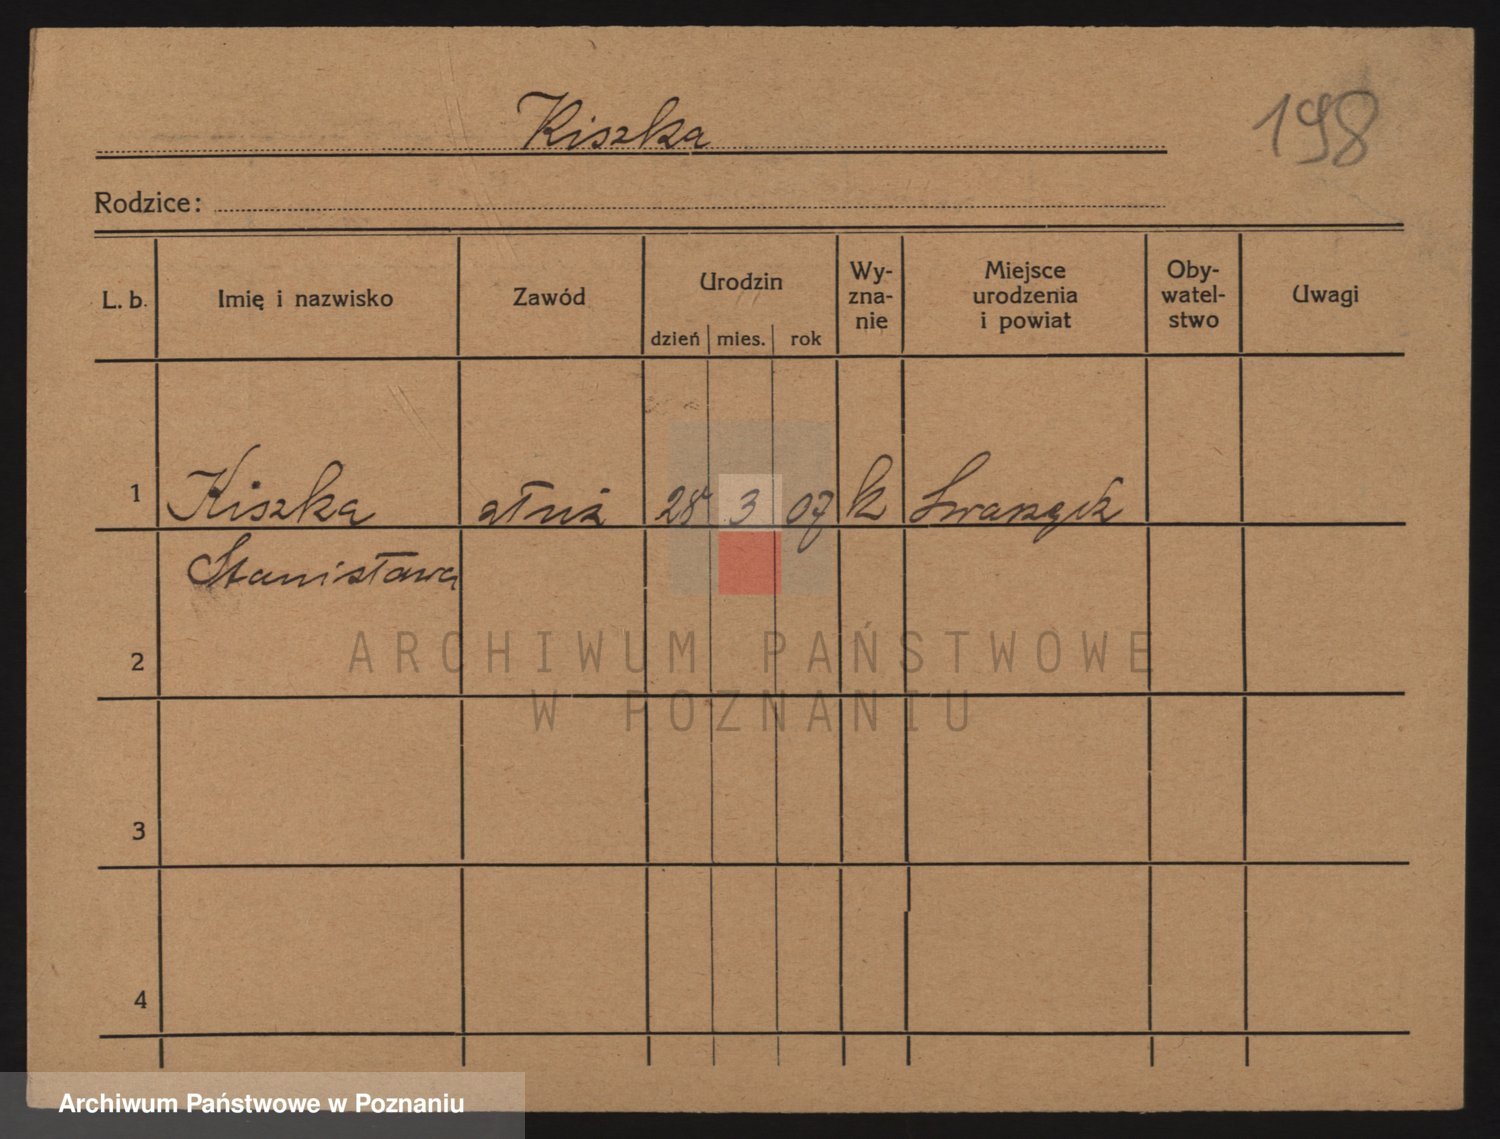 Kiszka
198
Rodzice:
L. b.
Imię i nazwisko
Zawód
Urodzin
dzień mies. rok
Wy-
zna-
nie
Miejsce
urodzenia
i powiat
Oby-
watel-
stwo
Uwagi
1 Kiszka służ 28 3 07 k
Stanisława
2
3
4
ARCHIWUM PAŃSTWOWE
W POZNANIU
Archiwum Państwowe w Poznaniu